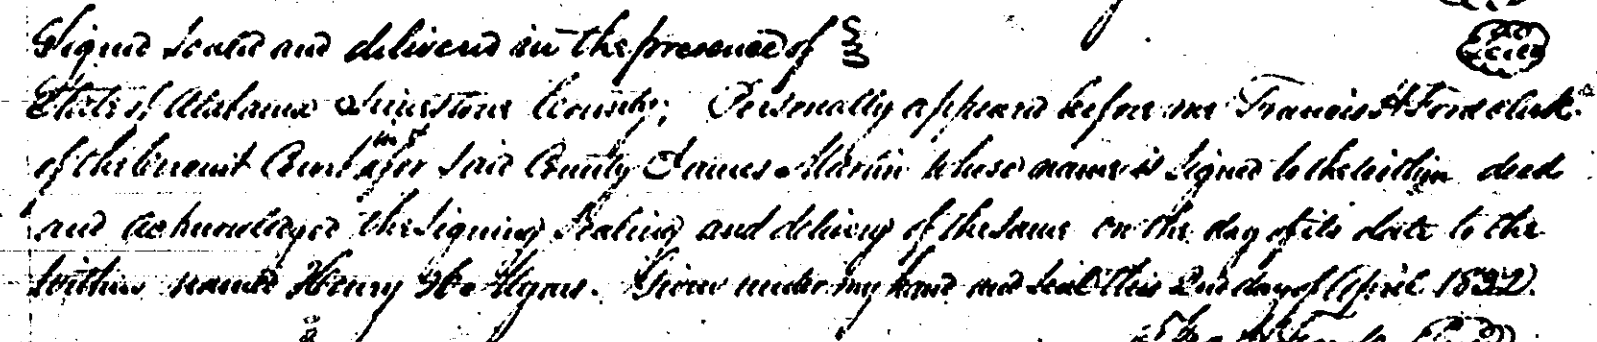 Signed Sealed and delivered in the presence of
Seal
State of Alabama Limestone County; Personally appeared before me Francis H Ford clerk
of the Circuit Court in & for Said County James Martin whose name is Signed to the within deed
and acknowledged the Signing Sealing and delivery of the Same on the day of its date to the
within named Henry Given under my hand and Seal this 2nd day of April 1832.